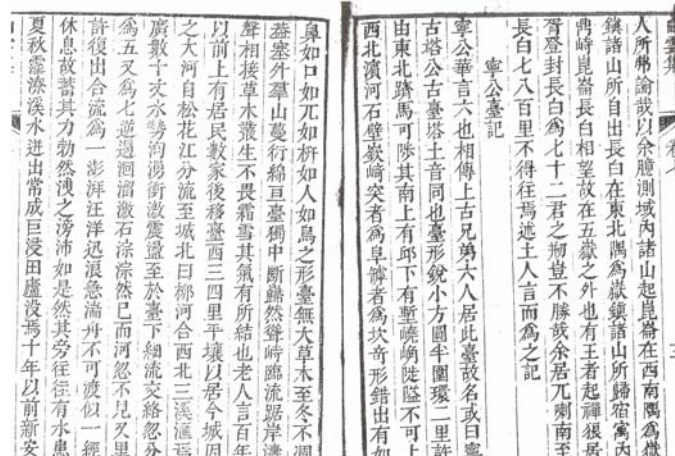 人所弗諭哉以余臆測域内諸山起崑崙在西南隅爲嶽
鎮諸山所自出長白在東北隅爲嶽鎮諸山所歸宿寓内
鼎峙崑崙長白相望故在五嶽之外也有王者起禪狼居
胥登封長白爲七十二君之椒豈不勝哉余居兀喇南至
長白七八百里不得往焉述土人言而爲之記
寧公臺記
寧公華言六也相傳上古兄弟六人居此臺故名或曰寧
古塔公古臺塔土音同也臺形銳小方圍半圍環二里許
由東北躋馬可陟其南上有邱下有塹嶢崅陡隘不可上
西北濱河石壁嶔崎突者爲阜罅者爲坎奇形錯出有如
鼻如口如兀如枅如人如鳥之形臺無大草木至冬不凋
蓋塞外羣山蔓衍綿亘臺獨中斷巋然聳峙臨流踞岸濤
聲相接草木叢生不畏霜雪其氣有所結也老人言百年
以前上有居民數家後移臺西三四里平壤以居今城因
之大河自松花江分流至城北曰柳河合西北三溪滙焉
廣數十丈水勢洶湧衝激震盪至於臺下細流交絡忽分
爲五又爲七逆遏洄溜激石淙淙然巳而河忽不見又里
許復出合流爲一澎湃汪洋迅浪急湍舟不可渡似一經
休息故蓄其力勃然洩之滂沛如是然其旁往往有水患
夏秋霪潦溪水迸出常成巨浸田廬没焉十年以前新安